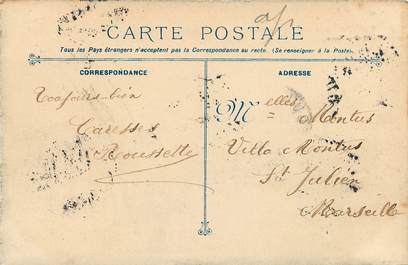 CARTE POSTALE
Tous les Pays étrangers n'acceptent pas la Correspondance au recto. (Se renseigner à la Poste)
CORRESPONDANCE
ADRESSE
Toujours bien
Caresses
Roussette
M elles Montus
Villa Montus
St Julien
Marseille